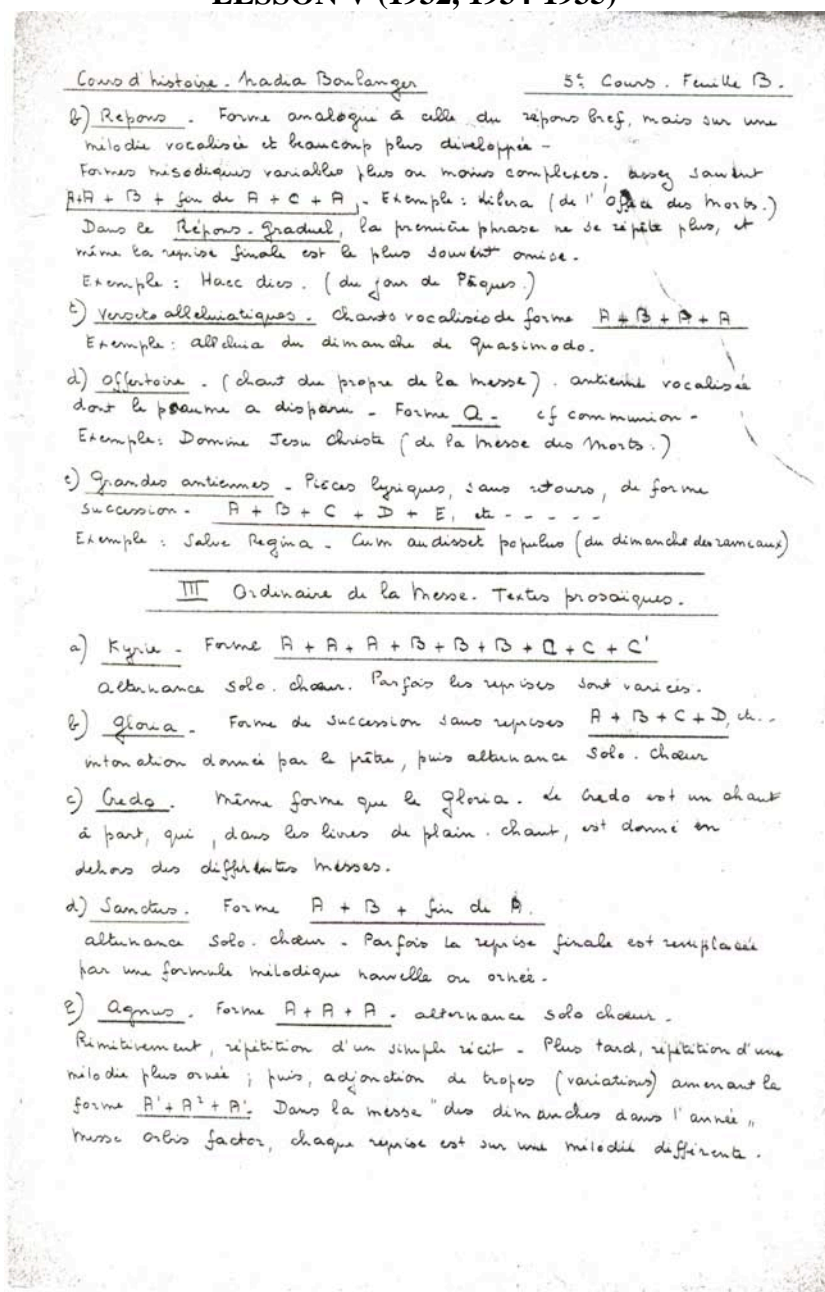 LESSON V (1932, 1934-1935)
Cours d'histoire - Nadia Boulanger 5e Cours. Feuille B.
b) Repons - Forme analogue à celle du répons bref, mais sur une
mélodie vocalisée et beaucoup plus développée -
Formes mésodiques variables plus ou moins complexes. assez souvent
A+A + B + fin de A + C + A. - Exemple : Libera (de l'Office des Morts.)
Dans le Répons-Graduel, la première phrase ne se répète plus, et
même la reprise finale est le plus souvent omise.
Exemple : Haec dies. (du jour de Pâques.)
c) Versets alleluiatiques - Chants vocalisés de forme A + B + A + A
Exemple : alleluia du dimanche de Quasimodo.
d) Offertoire - (chant du propre de la messe). antienne vocalisée
dont le psaume a disparu - Forme A - cf communion -
Exemple : Domine Jesu Christe (de la Messe des Morts.)
e) Grandes antiennes - Pièces lyriques, sans retours, de forme
succession - A + B + C + D + E, etc - - - - -
Exemple : Salve Regina - Cum audisset populus (du dimanche des rameaux)
III Ordinaire de la Messe. Textes prosaïques.
a) Kyrie - Forme A + A + A + B + B + B + C + C + C'
alternance solo. chœur. Parfois les reprises sont variées.
b) Gloria - Forme de succession sans reprises A + B + C + D, etc..
intonation donnée par le prêtre, puis alternance solo. chœur
c) Credo. Même forme que le Gloria. Le Credo est un chant
à part, qui, dans les livres de plain-chant, est donné en
dehors des différentes messes.
d) Sanctus. Forme A + B + fin de A.
alternance solo. chœur - Parfois la reprise finale est remplacée
par une formule mélodique nouvelle ou ornée.
e) Agnus. Forme A + A + A. alternance solo chœur.
Primitivement, répétition d'un simple récit - Plus tard, répétition d'une
mélodie plus ornée ; puis, adjonction de tropes (variations) amenant la
forme A' + A² + A'. Dans la messe "des dimanches dans l'année"
messe orbis factor, chaque reprise est sur une mélodie différente.